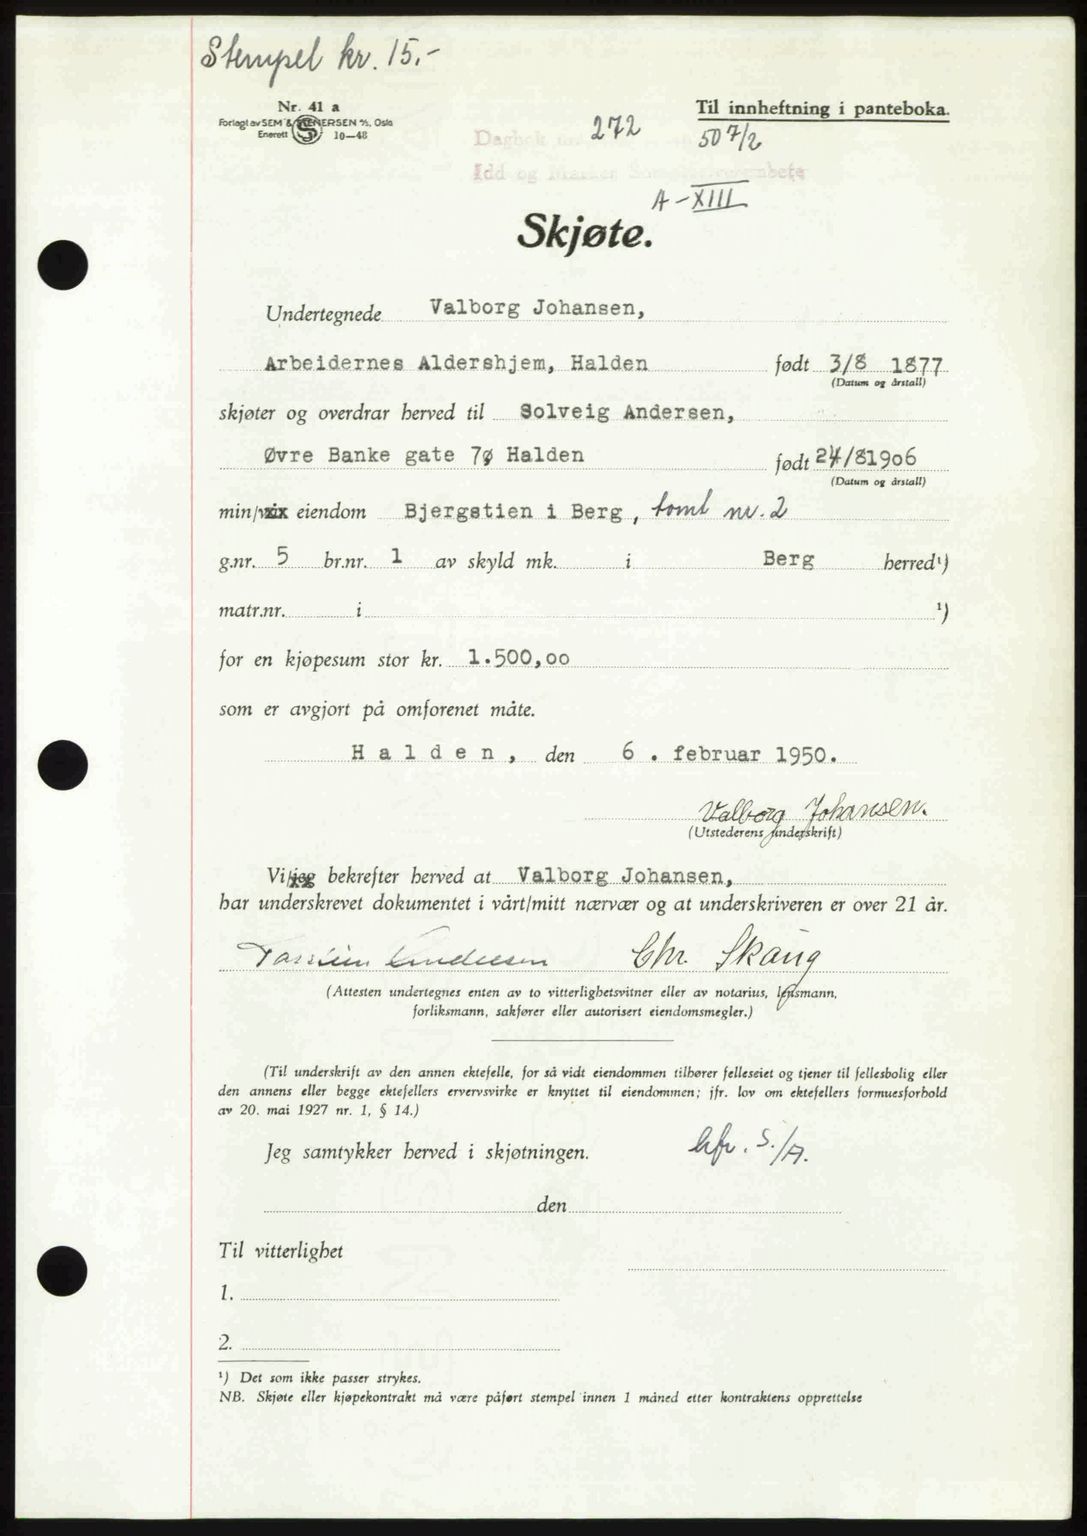 Stempel kr. 15.-
Nr. 41 a
Forlagt av SEM & STENERSEN A/S, Oslo
Enerett 10—48
Til innheftning i panteboka.
Dagbok 272 50 7/2
Idd og Marker
A-XIII
Skjøte.
Undertegnede Valborg Johansen,
Arbeidernes Aldershjem, Halden født 3/8 1877
(Datum og årstall)
skjøter og overdrar herved til Solveig Andersen,
Øvre Banke gate 7ø Halden født 24/81906
(Datum og årstall)
min/vår eiendom Bjergstien i Berg, tomt nr. 2
g.nr. 5 br.nr. 1 av skyld mk. i Berg herred¹)
matr.nr. i ¹)
for en kjøpesum stor kr. 1.500,oo
som er avgjort på omforenet måte.
Halden, den 6. februar 1950.
Valborg Johansen.
(Utstederens underskrift)
Vi/jeg bekrefter herved at Valborg Johansen,
har underskrevet dokumentet i vårt/mitt nærvær og at underskriveren er over 21 år.
Chr. Skaug
(Attesten undertegnes enten av to vitterlighetsvitner eller av notarius, lensmann,
forliksmann, sakfører eller autorisert eiendomsmegler.)
(Til underskrift av den annen ektefelle, for så vidt eiendommen tilhører felleseiet og tjener til fellesbolig eller
den annens eller begge ektefellers ervervsvirke er knyttet til eiendommen; jfr. lov om ektefellers formuesforhold
av 20. mai 1927 nr. 1, § 14.)
Jeg samtykker herved i skjøtningen. kfr. S./A.
den
Til vitterlighet
1.
2.
¹) Det som ikke passer strykes.
NB. Skjøte eller kjøpekontrakt må være påført stempel innen 1 måned etter kontraktens opprettelse